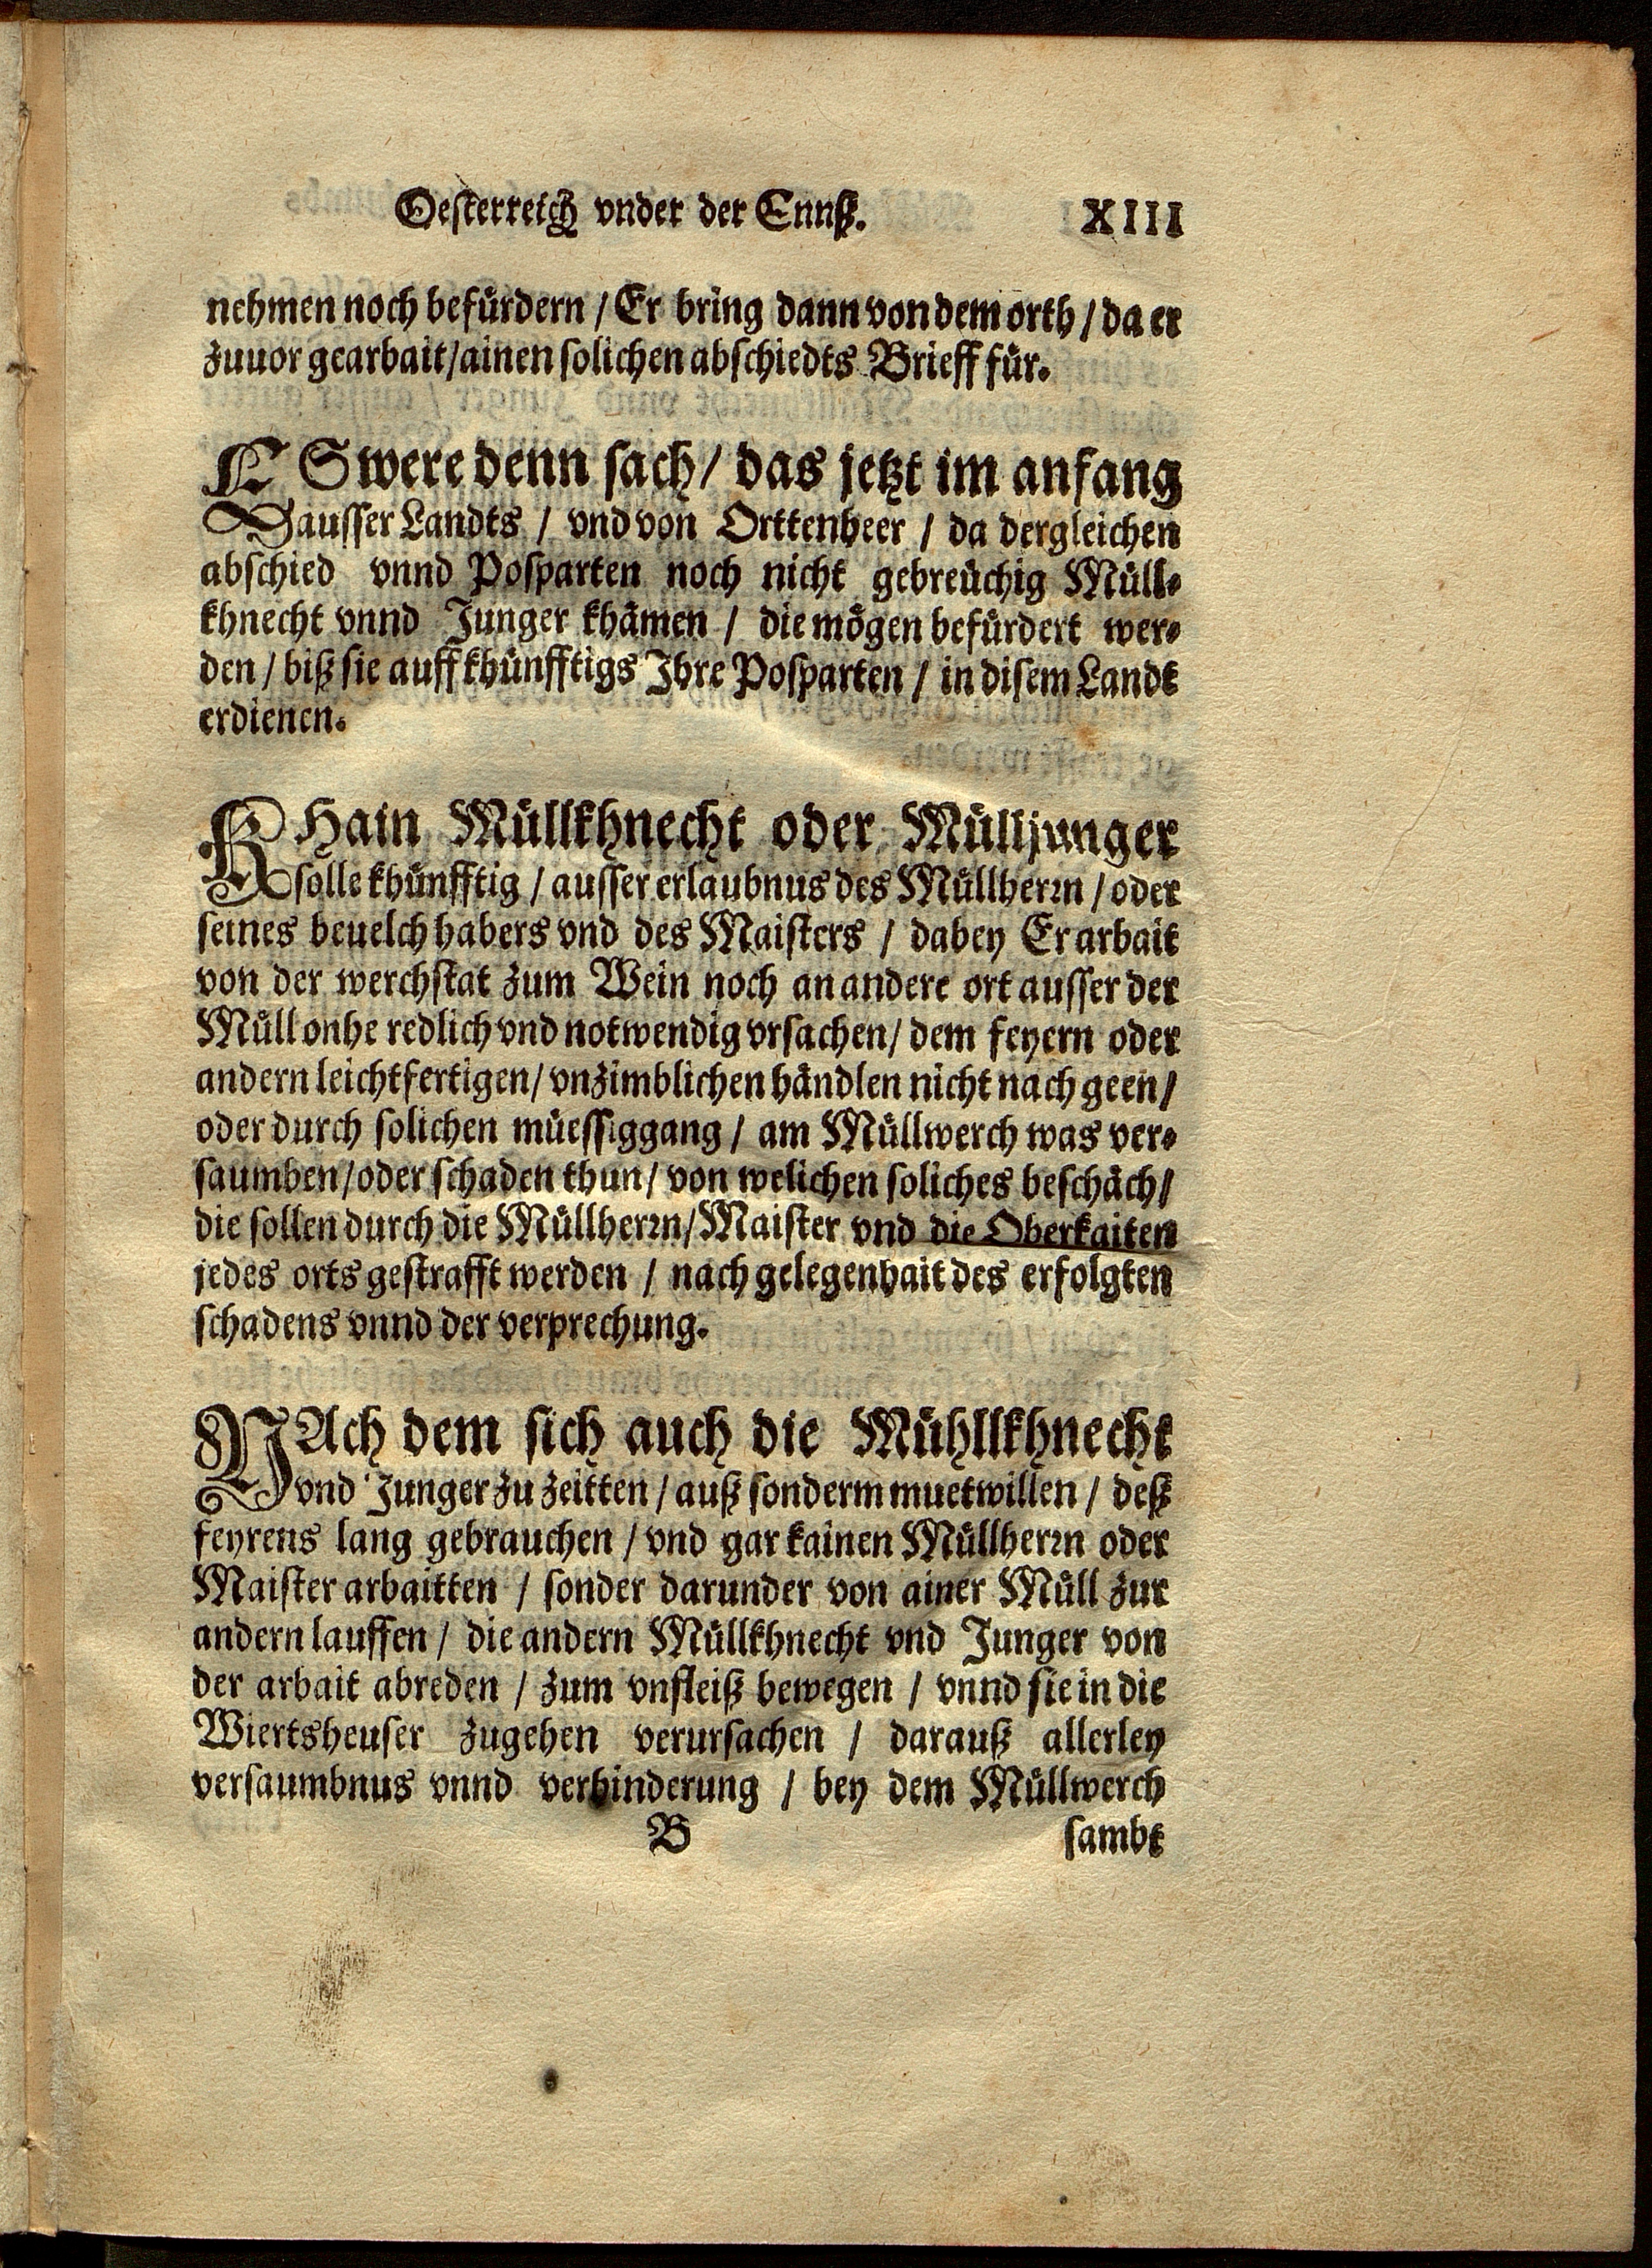 Oesterreich vnder der Ennß. XIII
nehmen noch befürdern / Er bring dann von dem orth / da er
zuuor gearbait / ainen solichen abschiedts Brieff für.
ES were denn sach / das jetzt im anfang
ausser Landts / vnd von Orttenheer / da dergleichen
abschied vnnd Posparten noch nicht gebreüchig Müll-
khnecht vnnd Junger khämen / die mögen befürdert wer-
den / biß sie auff khünfftigs Ihre Posparten / in disem Landt
erdienen.
KHain Müllkhnecht oder Mülljunger
solle khünfftig / ausser erlaubnus des Müllherrn / oder
seines beuelch habers vnd des Maisters / dabey Er arbait
von der werchstat zum Wein noch an andere ort ausser der
Müll onhe redlich vnd notwendig vrsachen / dem feyern oder
andern leichtfertigen / vnzimblichen händlen nicht nach geen /
oder durch solichen müessiggang / am Müllwerch was ver-
saumben / oder schaden thun / von welichen soliches beschäch /
die sollen durch die Müllherrn / Maister vnd die Oberkaiten
jedes orts gestrafft werden / nach gelegenhait des erfolgten
schadens vnnd der verprechung.
NAch dem sich auch die Mühllkhnecht
vnd Junger zu zeitten / auß sonderm muetwillen / deß
feyrens lang gebrauchen / vnd gar kainen Müllherrn oder
Maister arbaitten / sonder darunder von ainer Müll zur
andern lauffen / die andern Müllkhnecht vnd Junger von
der arbait abreden / zum vnfleiß bewegen / vnnd sie in die
Wiertsheuser zugehen verursachen / darauß allerley
versaumbnus vnnd verhinderung / bey dem Müllwerch
B sambt